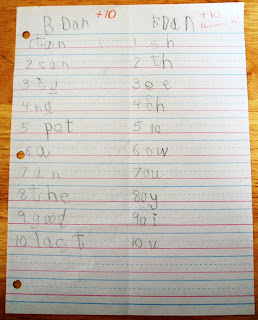 B Dan +10
1 tan
2 san
3
4
5 pet
6 a
7 an
8 the
9 good
10 last
B Dan +10
1 sh
2 th
3 ee
4 ch
5
6 ow
7 ou
8 oy
9 oi
10 u